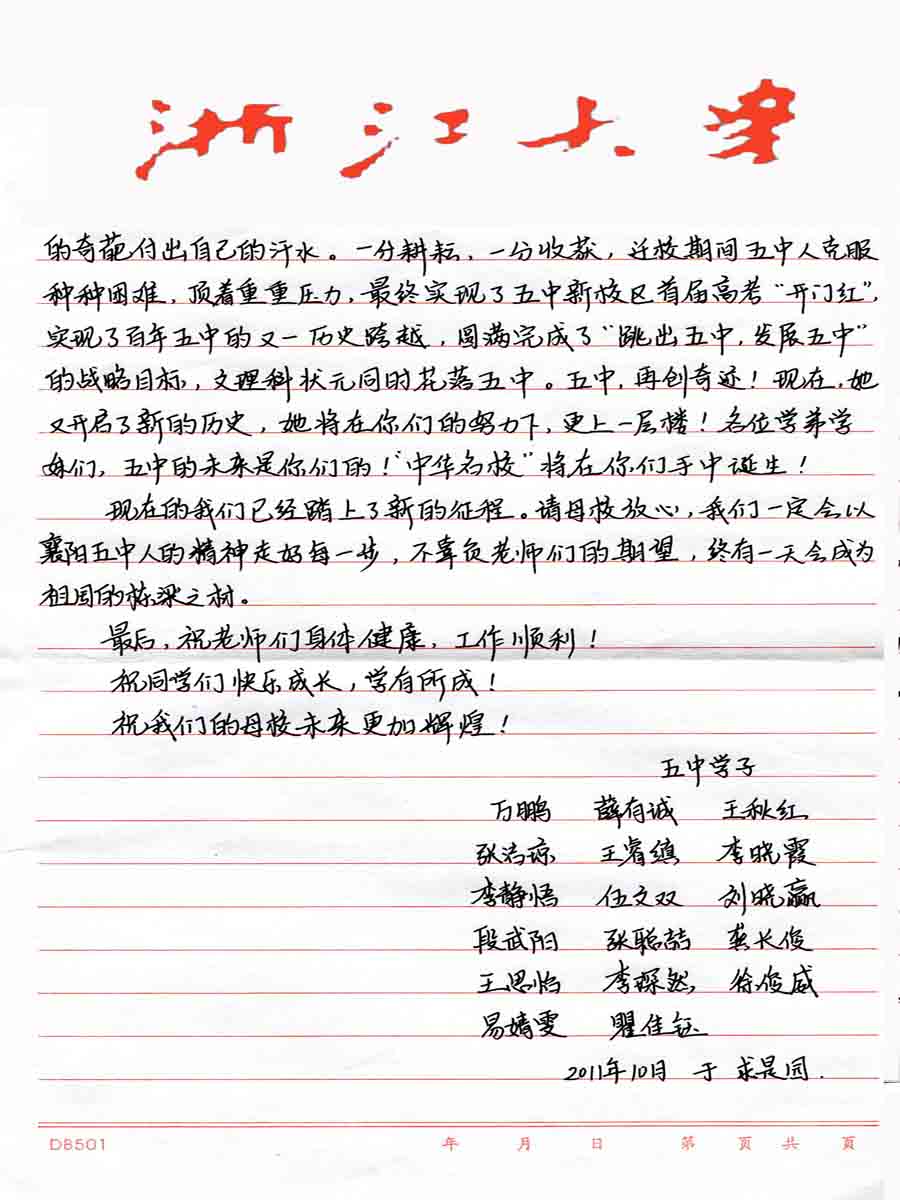 浙江大学
的奇葩付出自己的汗水。一分耕耘，一分收获，迁校期间五中人克服
种种困难，顶着重重压力，最终实现了五中新校区首届高考“开门红”，
实现了百年五中的又一历史跨越，圆满完成了“跳出五中，发展五中”
的战略目标，文理科状元同时花落五中。五中，再创奇迹！现在，她
又开启了新的历史，她将在你们的努力下，更上一层楼！各位学弟学
妹们，五中的未来是你们的！“中华名校”将在你们手中诞生！
现在的我们已经踏上了新的征程。请母校放心，我们一定会以
襄阳五中人的精神走好每一步，不辜负老师们的期望，终有一天会成为
祖国的栋梁之材。
最后，祝老师们身体健康，工作顺利！
祝同学们快乐成长，学有所成！
祝我们的母校未来更加辉煌！
五中学子
万鹏 薛有诚 王秋红
张浩谅 王睿缜 李晓霞
李静悟 伍文双 刘晓赢
段武阳 张聪喆 龚长俊
王思怡 李琛然 徐俊威
易婧雯 瞿佳钰
2011年10月 于 求是园.
DB501 年 月 日 第 页 共 页